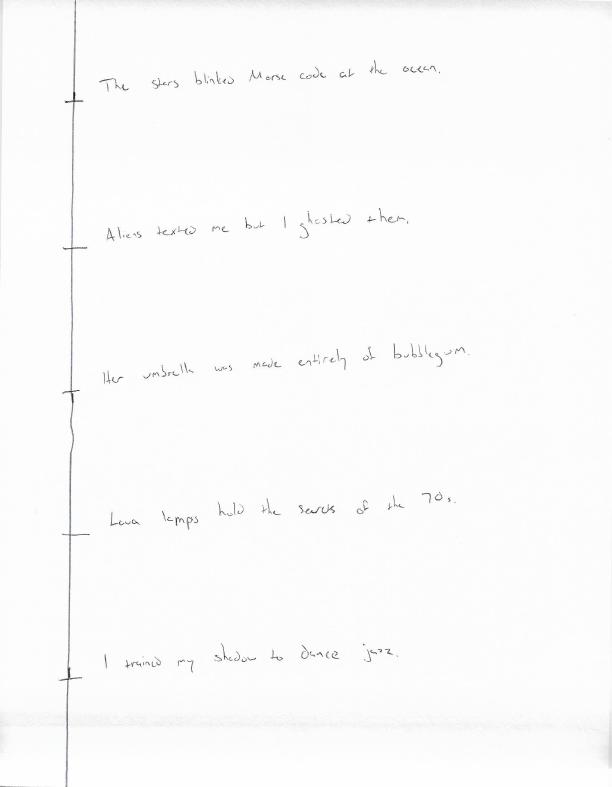 The stars blinked Morse code at the ocean.
Aliens texted me but I ghosted them.
Her umbrella was made entirely of bubblegum.
Lava lamps hold the secrets of the 70s.
I trained my shadow to dance jazz.